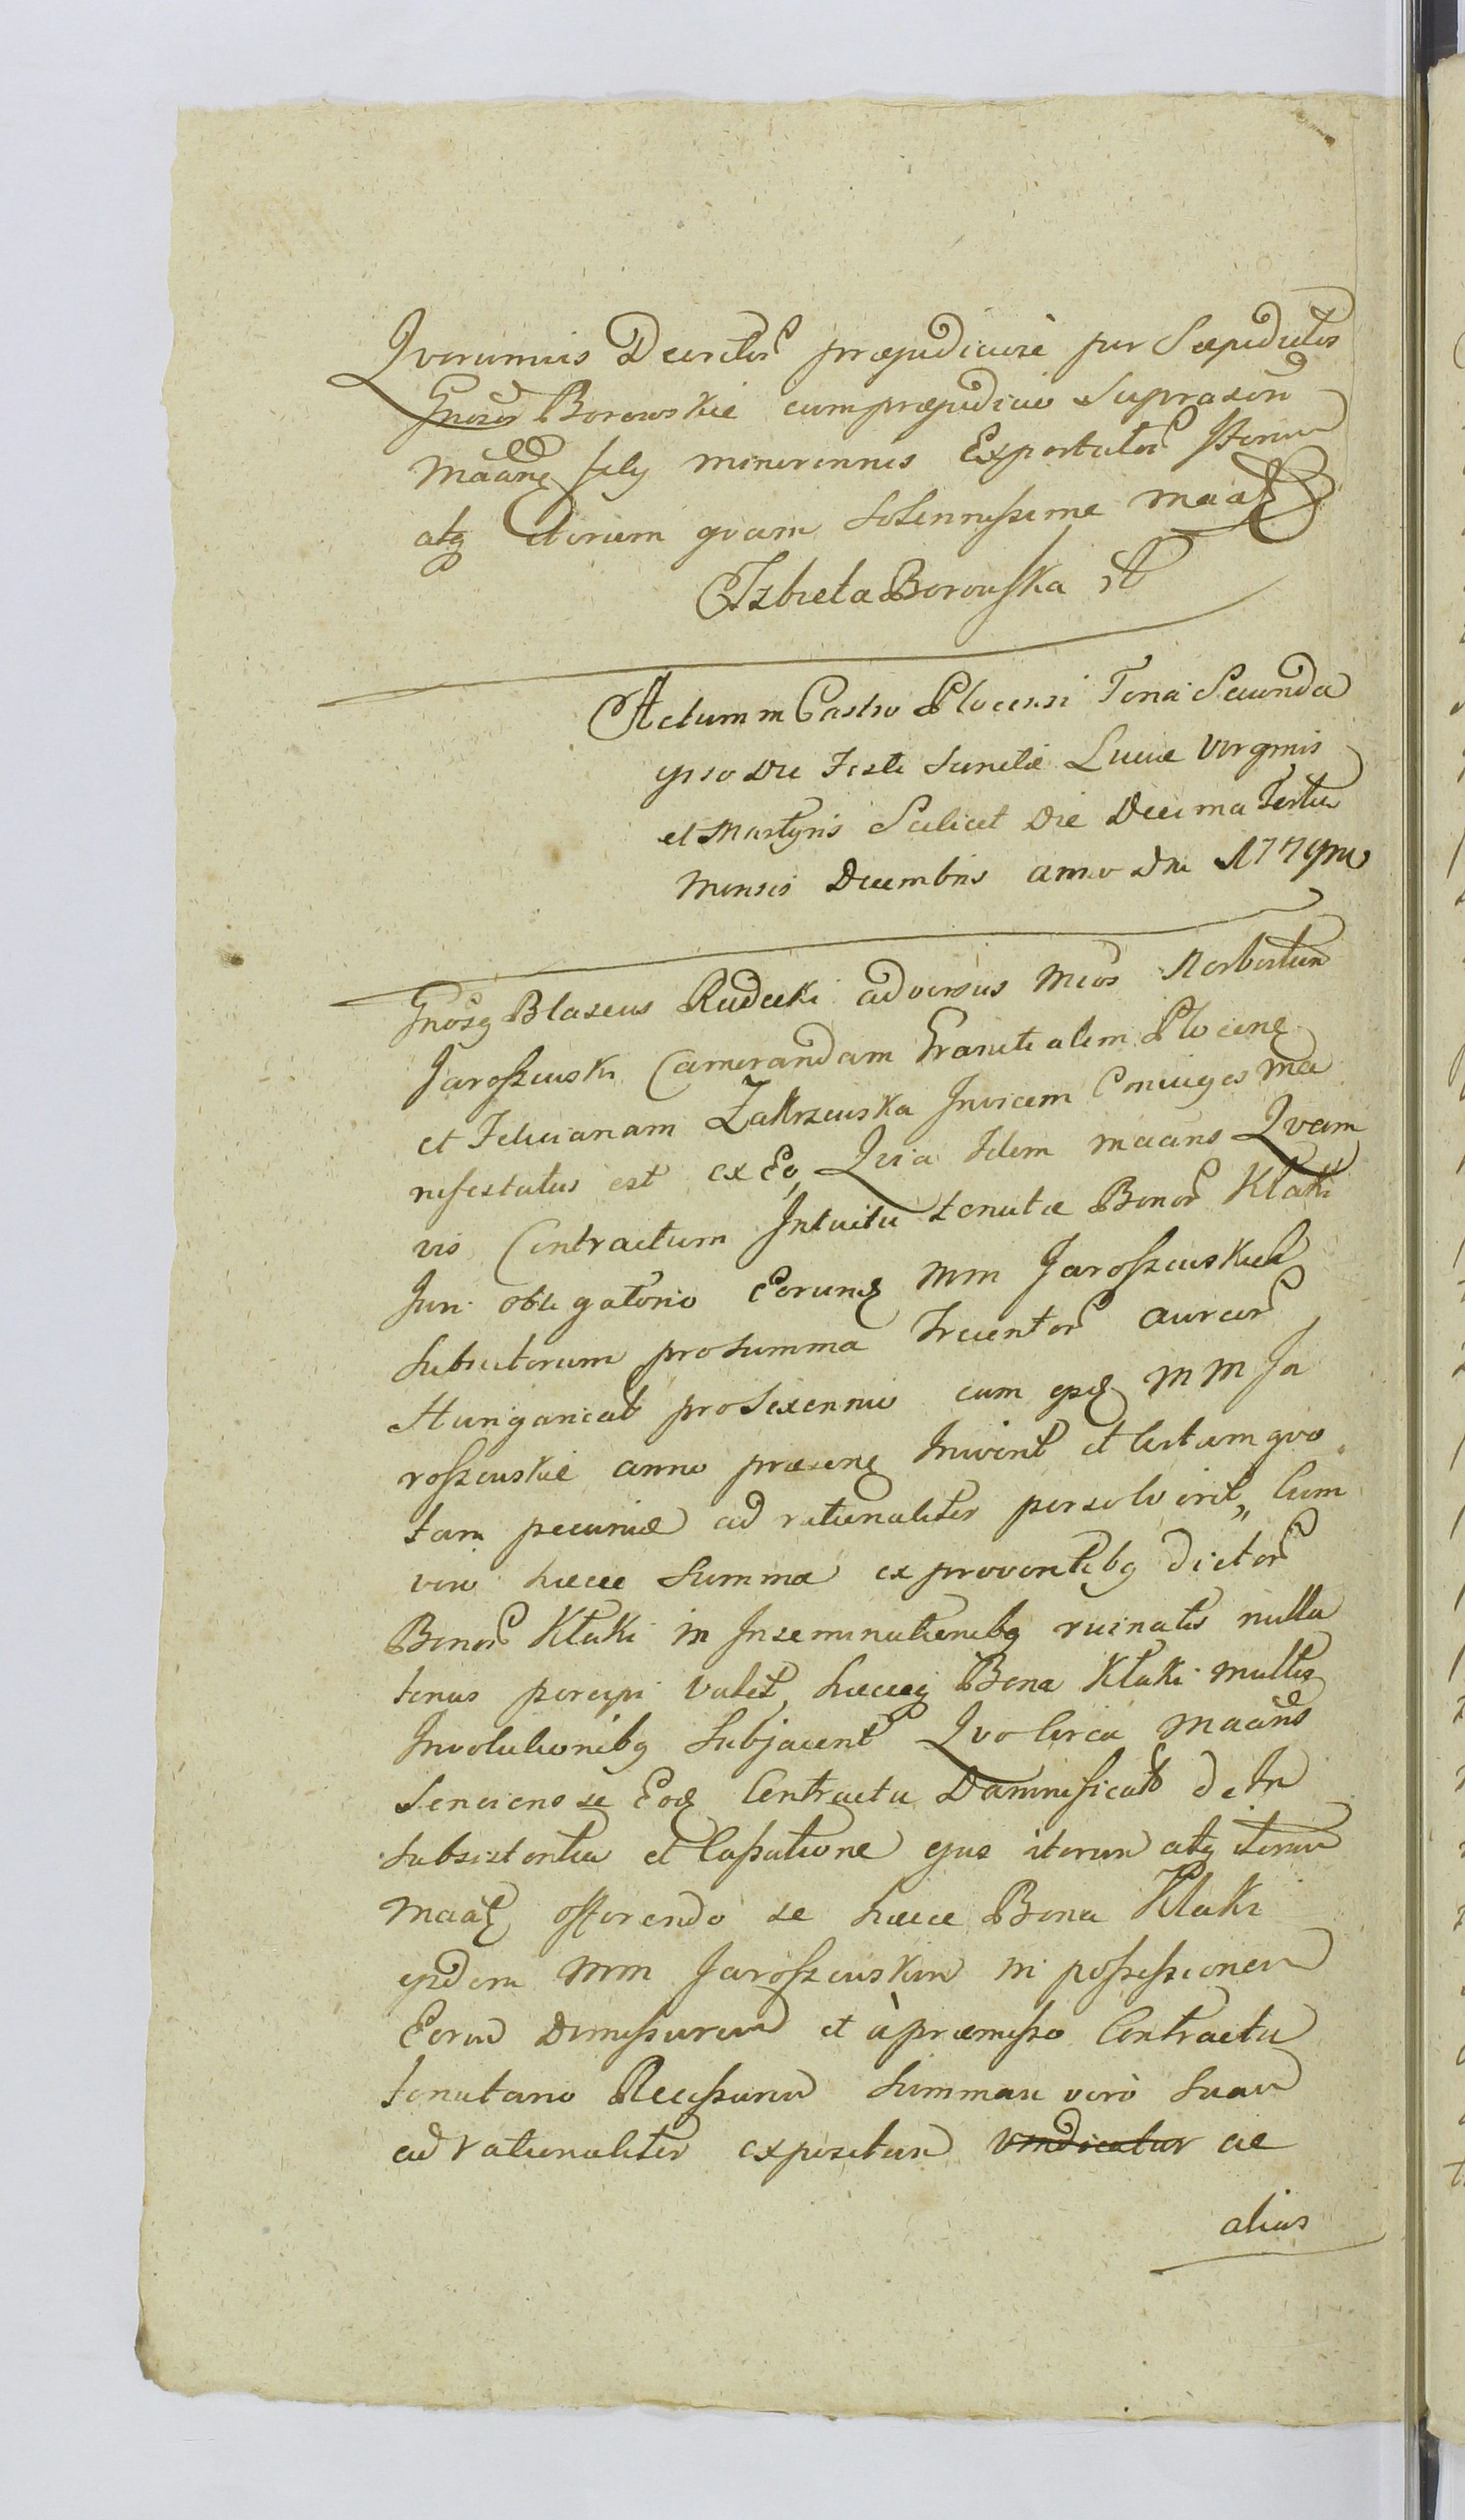 Qvorumvis Decretor praejudiciose per Saepedictos
Gnosos Borowskie cum praejudicio Supraxen
Maane filij minorennis Exportator Iterum
atq Iterum qvam Solennissime maatz
Elzbieta Borowska
Actum in Castro Plocensi Feria Secunda
ipso Die Festi Sanctae Luciae Virginis
et Martyris Scilicet Die Decima Tertia
Mensis Decembris anno Dni 1779no
Gnosq Blaseus Rudecki adversus Mcos Norbertum
Jaroszewski Camerandam Graniti alem Plocene
et Felicianam Zakrzewska Invicem Conjuges ma
nifestatus est ex Eo, Qvia Idem maans Qvam
vis Contractum Intuitu tenutae Bonor Kłaki
Juri obligatorio Eorund MM Jaroszewskich
Subjectorum pro Summa Trecentor aureor
Hungarical pro Sexennio cum ysd MM Ja
roszewskie anno praesene Inivent et Certam qvo
tam pecuniae ad rationaliter persolverit, Cum
vero haecce Summa ex proventibq dictor
Bonor Kłaki in Inseminationibq ruinatis nulla
tenus percipi valet, haecq Bona Kłaki multis
Involutionibq Subjacent Qvo Circa Maans
Senciens se Eod Contractu Damnificat de In
subsistentia et Cassatione ejus iterum atq iterum
maatz offerendo se haecce Bona Kłaki
ysdem MM Jaroszewskim in possessionem
Eorum Dimissurum et à praemisso Contractu
tenutario Recessurum Summam verò Suam
ad rationaliter expositam vindicatur ac
alias